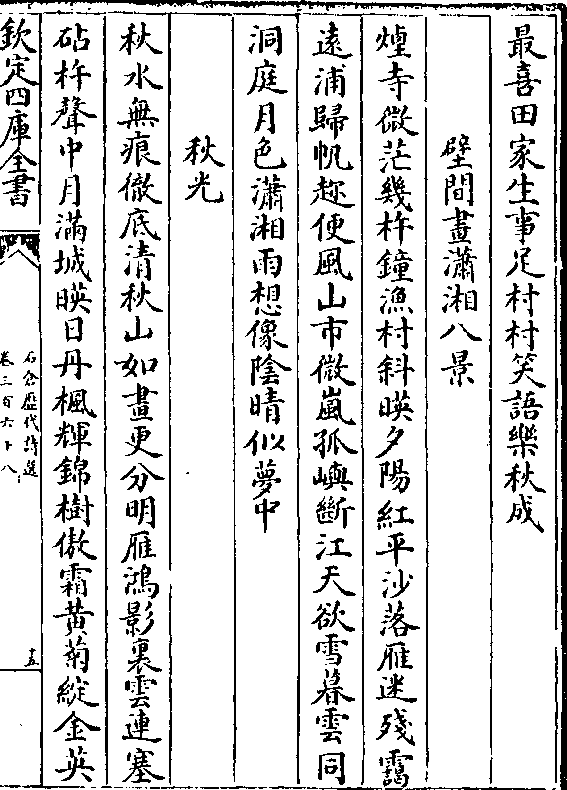 最喜田家生事足村村笑語樂秋成
壁間畫瀟湘八景
煙寺微茫幾杵鐘漁村斜暎夕陽紅平沙落雁迷殘靄
遠浦歸帆趂便風山市微嵐孤嶼斷江天欲雪暮雲同
洞庭月色瀟湘雨想像陰晴似夢中
秋光
秋水無痕徹底清秋山如畫更分明雁鴻影裏雲連塞
砧杵聲中月滿城暎日丹楓輝錦樹傲霜黃菊綻金英
欽定四庫全書
石倉歷代詩選
卷三百六十八
十五